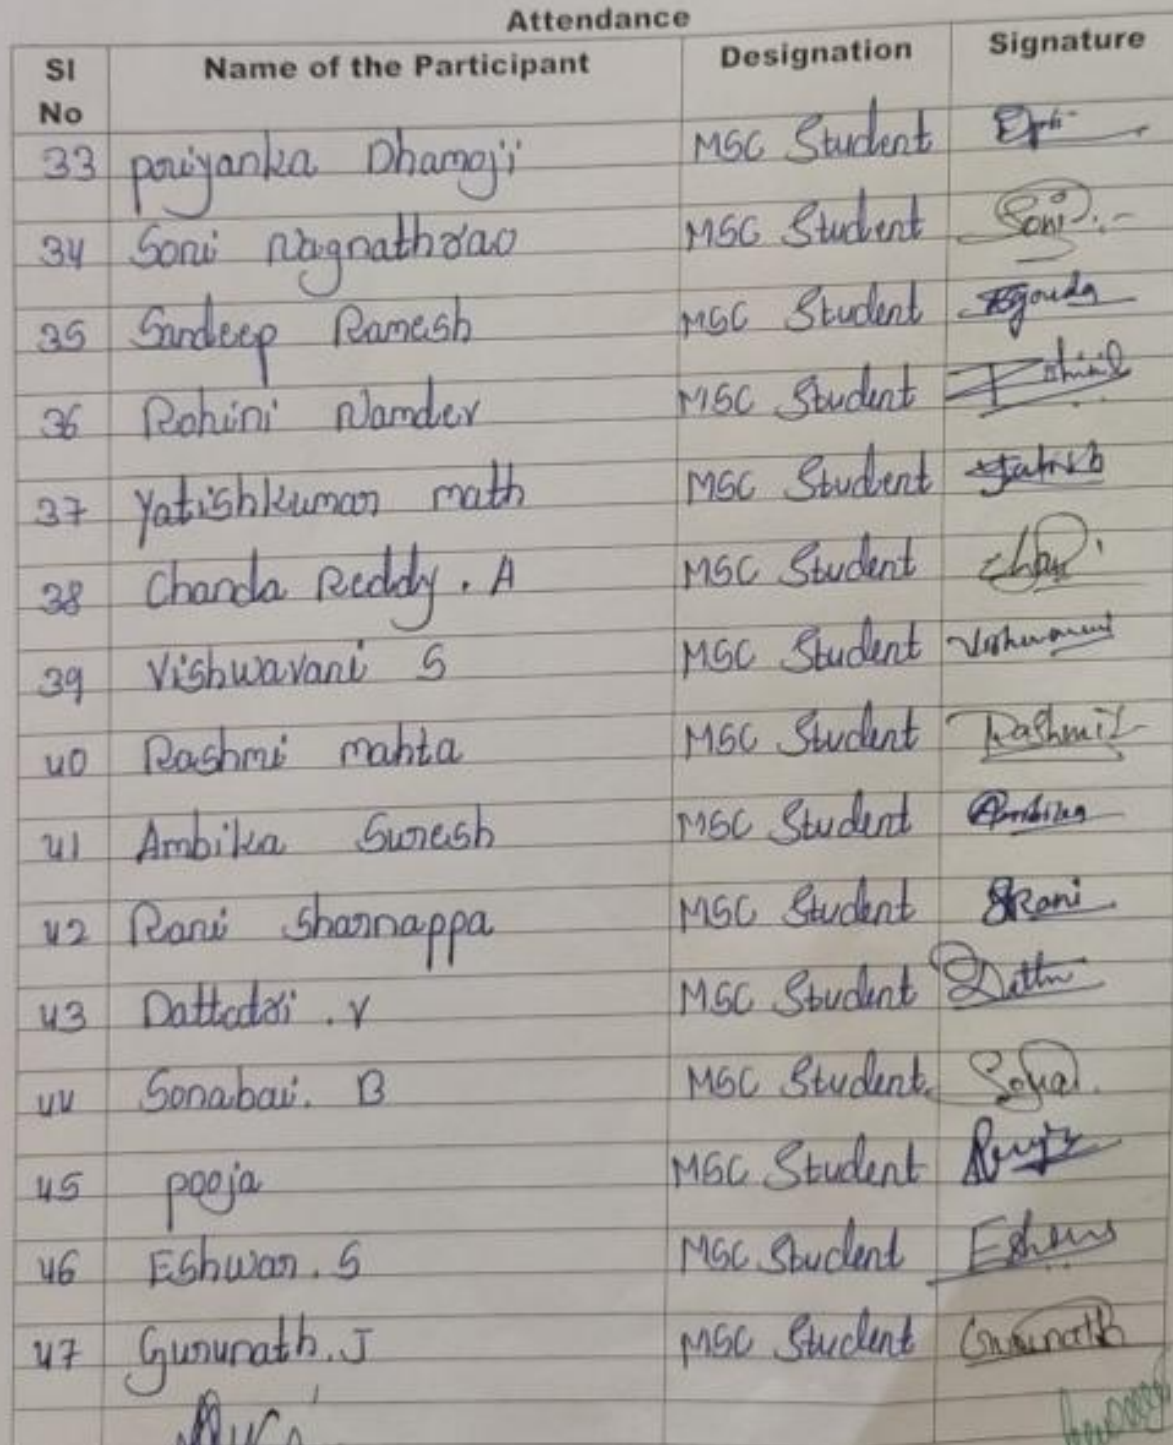 Attendance
Sl No Name of the Participant Designation Signature
33 Priyanka Dhamoji MSC Student
34 Soni Nagnathrao MSC Student Soni
35 Sandeep Ramesh MSC Student
36 Rohini Namdev MSC Student
37 Yatishkumar math MSC Student Yatish
38 Chanda Reddy . A MSC Student
39 Vishwavani S MSC Student
40 Rashmi mahta MSC Student Rashmi
41 Ambika Suresh MSC Student Ambika
42 Rani Sharnappa MSC Student Rani
43 Dattatri . V MSC Student
44 Sonabai. B MSC Student.
45 pooja MSC Student
46 Eshwar. S MSC Student
47 Gururath. J MSC Student